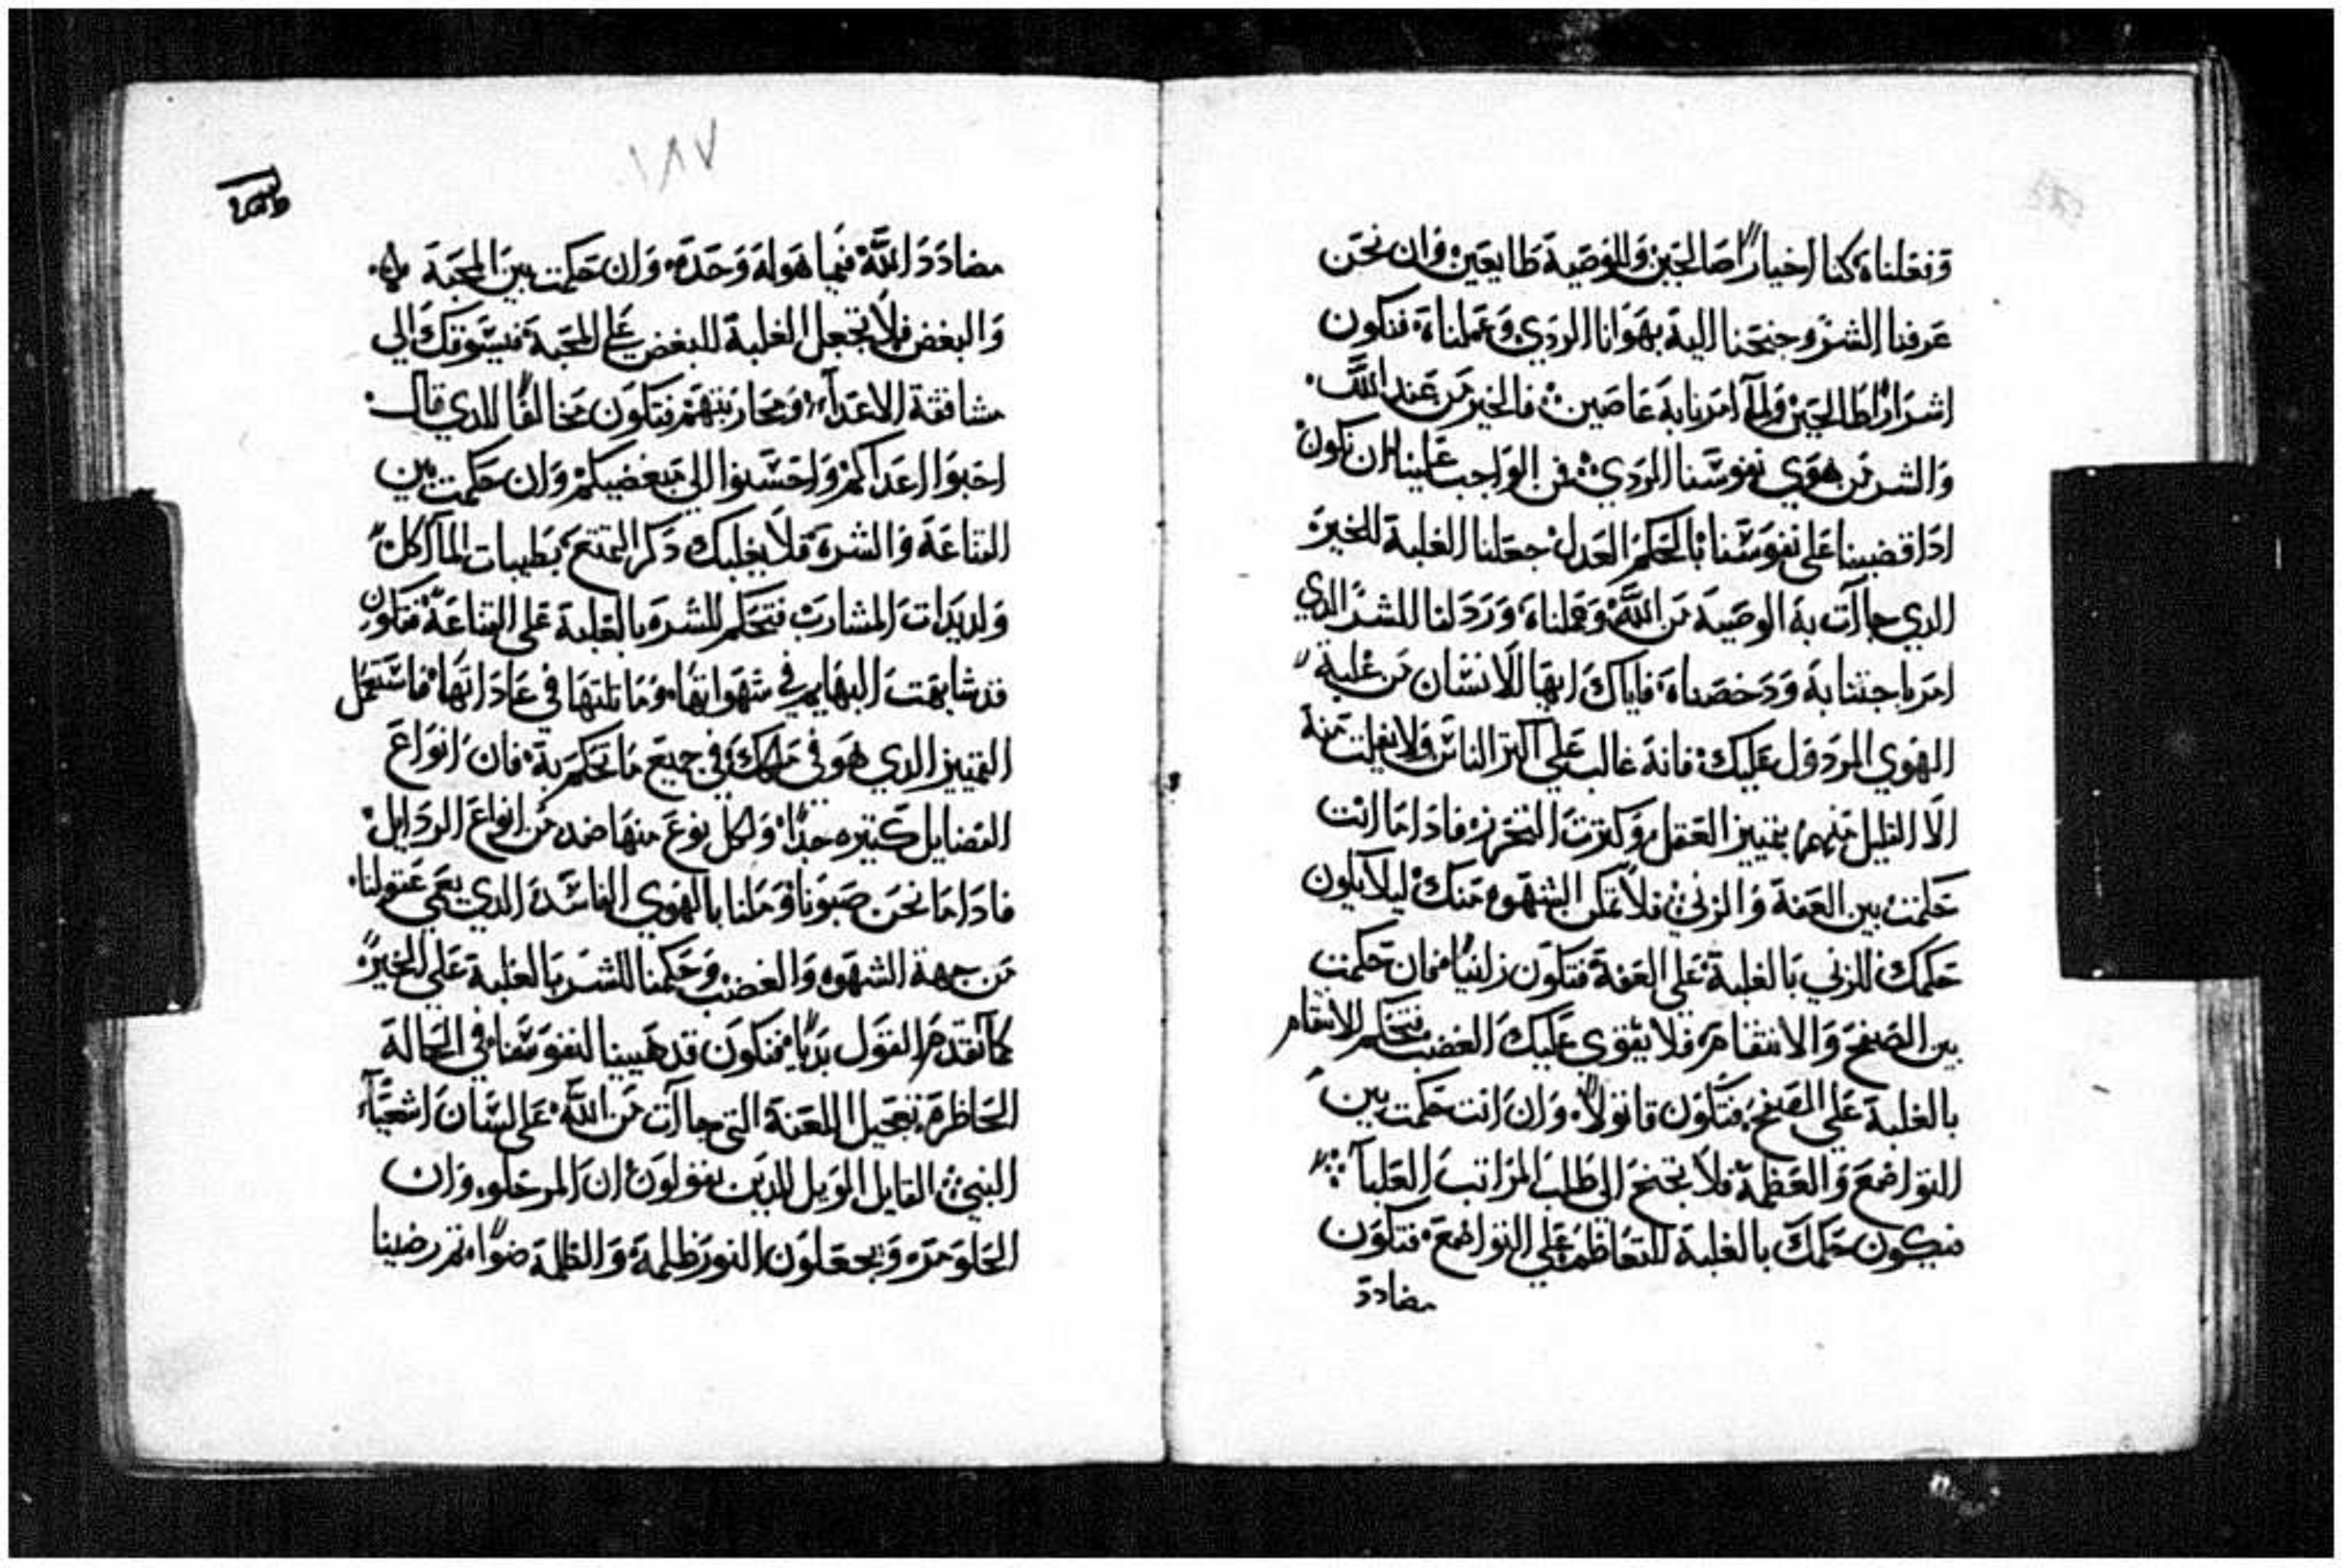 وفعلناه كنا اخياراً صالحين وللوصية طايعين وان نحن
عرفنا الشر وجنحنا اليه بهوانا الردي وعملناه فنكون
اشرارا طالحين ولما امرنا به عاصين فالخير من عند الله
والشر من هوي نفوسنا الردي فمن الواجب علينا ان نكون
اذا قضينا علي نفوسنا بالحكم العدل جعلنا الغلبة للخير
الدي جاآت به الوصية من الله وعملناه وردلنا للشر الدي
امرنا باجتنابه ودحضناه فاياك ايها الانسان من غلبة
الهوي المردول عليك فانه غالب علي اكتر الناس ولا يفلت منه
الا القليل منهم بتمييز العقل وكترت التحرز فادا ما انت
حكمت بين العفة والزني فلا تمكن الشهوه منك ليلا يكون
حكمك للزني بالغلبة علي العفة فتكون زانيا فان حكمت
بين الصفح والانتقام فلا يقوي عليك الغضب فتحكم للانتقام
بالغلبة علي الصفح فتكون قاتولاً وان انت حكمت بين
التواضع والعظمة فلا تجنح الي طلب المراتب العليا
فيكون حكمك بالغلبة للتعاظم علي التواضع فتكون
مضادد
١٨٧
مضادد الله فيما هو له وحده وان حكمت بين المحبة
والبغض فلا تجعل الغلبة للبغض علي المحبة فيسوقك الي
مشاققة الاعدآء ومحاربتهم فتكون مخالفا للدي قال
احبوا اعداكم واحسنوا الي مبغضيكم وان حكمت بين
القناعة والشره فلا يغلبك دكر التمتع بطيبات المآاكل
ولديدات المشارب فتحكم للشره بالغلبة علي القناعة فتكون
قد شابهت البهايم في شهواتها وماتلتها في عاداتها فاستعمل
التمييز الدي هو في ملكك في جميع ما تحكم به فان انواع
الفضايل كتيره جدًا ولكل نوع منها ضد من انواع الردايل
فادا ما نحن صبونا وملنا بالهوي الفاسد الدي يعمي عقولنا
من جهة الشهوه والغضب وحكمنا للشر بالغلبة علي الخير
كما تقدم القول بدياً فنكون قد هيينا لنفوسنا في الحالة
الحاظرة تعجيل اللعنة التي جاآت من الله علي لسان اشعيآء
النبي القايل الويل للدين يقولون ان المر حلو وان
الحلو مر ويجعلون النور ظلمة والظلمة ضوًا تم رضينا